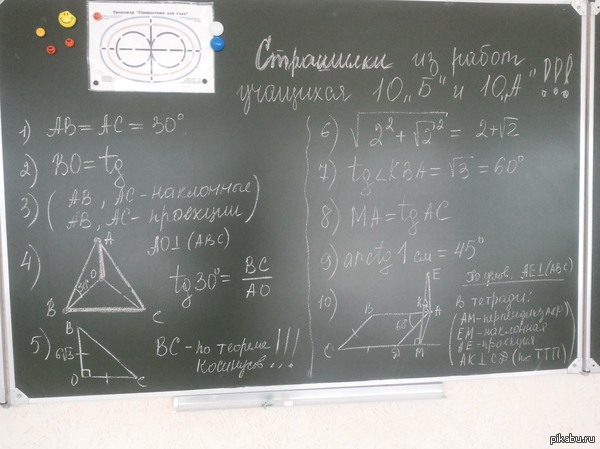 Тренажер "Гимнастика для глаз"
Страшилки из работ
учащихся 10 „Б" и 10 „А" !!!
1) AB = AC = 30°
2) BO = tg
3) ( AB, AC - наклонные
AB, AC - проекции )
4) A
AO⊥(ABC)
O
30°
B
C
tg 30° = BC/AO
5) B
6√3
O
C
BC - по теореме
косинусов... !!!
6) √(2² + √2²) = 2+√2
7) tg∠KBA = √3 = 60°
8) MA = tg AC
9) arctg 1 см = 45°
10) E
B
K
A
60°
C
D
M
По услов. AE⊥(ABC)
В тетради:
( AM - перпендикуляр
EM - наклонная
AE - проекция
AK⊥CD (по ТТП) )
pikabu.ru